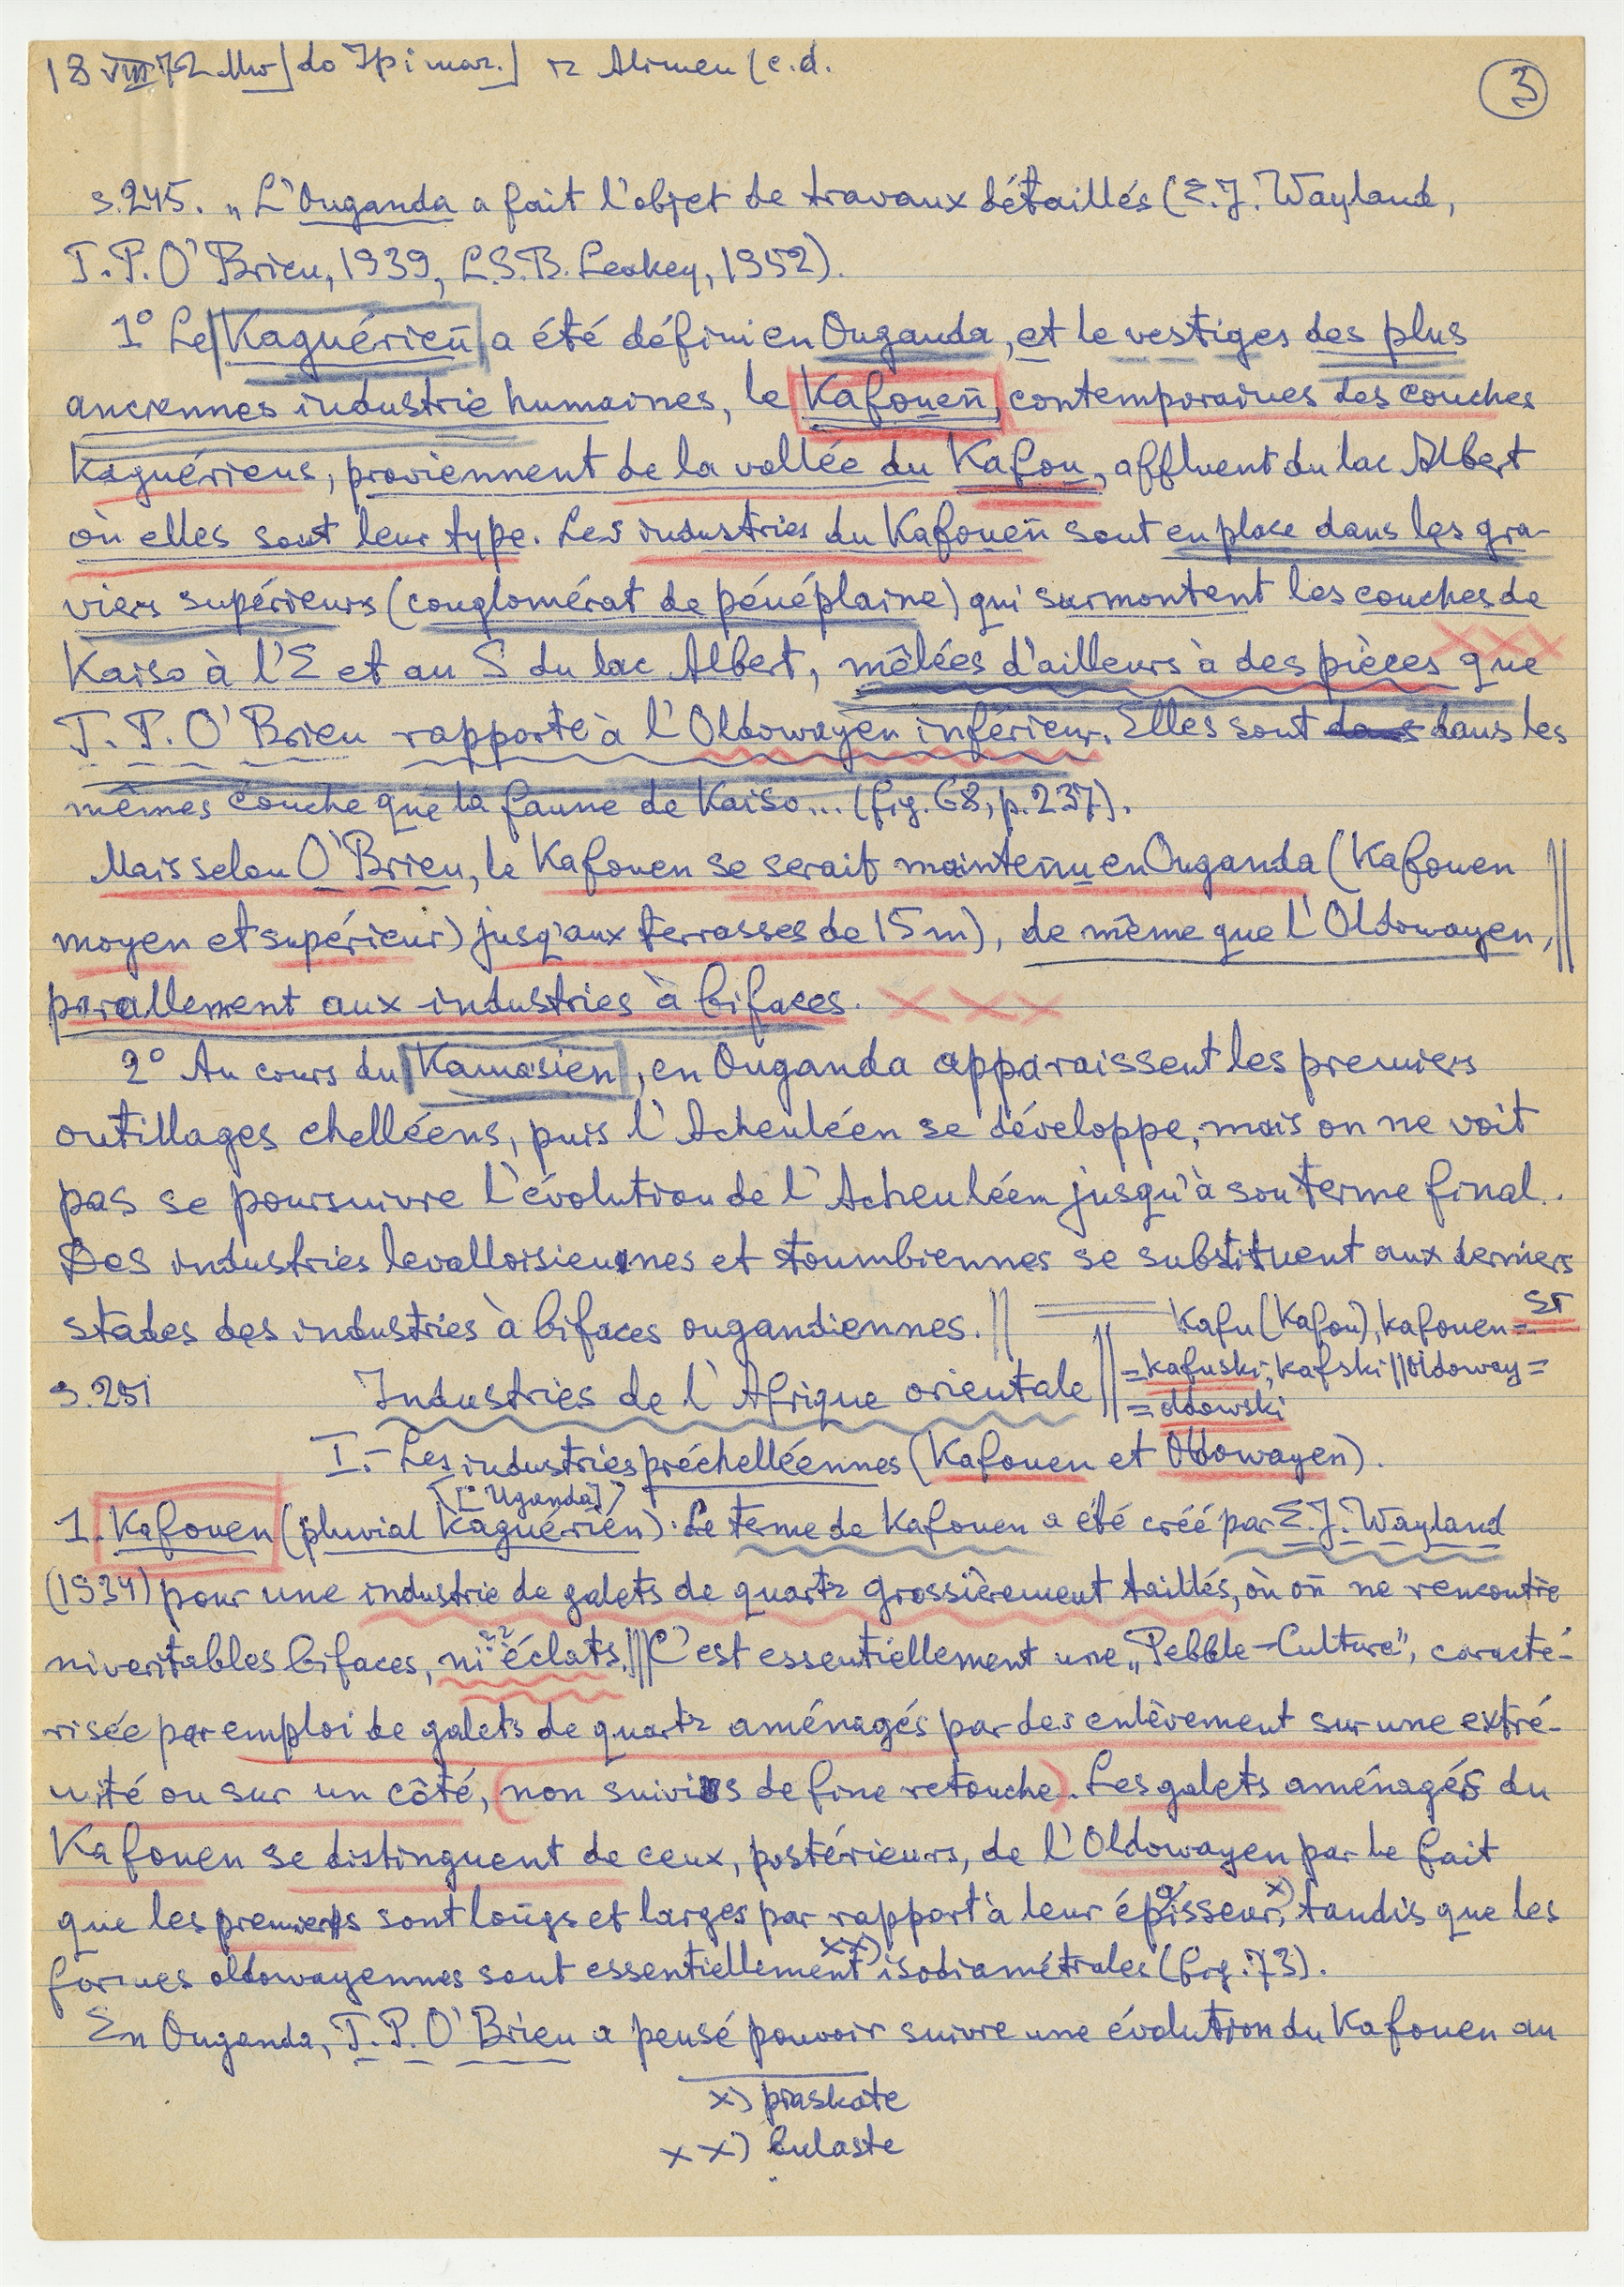 18 VIII 72 Mw] do Jpi maz.] z Alimen (c.d.
3
s.245. „L'Ouganda a fait l'objet de travaux détaillés (E.J. Wayland,
T.P. O'Brien, 1939, L.S.B. Leakey, 1952).
1° Le Kaguérien a été défini en Ouganda, et le vestiges des plus
anciennes industrie humaines, le Kafouen, contemporaines des couches
Kaguériens, proviennent de la vallée du Kafou, affluent du lac Albert
où elles sont leur type. Les industries du Kafouen sont en place dans les gra-
viers supérieurs (conglomérat de pénéplaine) qui surmontent les couches de
Kaiso à l'E et au S du lac Albert, mêlées d'ailleurs à des pièces que
T.P. O'Brien rapporte à l'Oldowayen inférieur. Elles sont dans les
mêmes couche que la faune de Kaiso... (fig. 68, p. 237).
Mais selon O'Brien, le Kafouen se serait maintenu en Ouganda (Kafouen
moyen et supérieur) jusq'aux terrasses de 15 m), de même que l'Oldowayen,
parallement aux industries à bifaces. × × ×
2° Au cours du Kamasien, en Ouganda apparaissent les premiers
outillages chelléens, puis l'Acheuléen se développe, mais on ne voit
pas se poursuivre l'évolution de l'Acheuléen jusqu'à son terme final.
Des industries levalloisiennes et toumbiennes se substituent aux derniers
stades des industries à bifaces ougandiennes. ||
Kafu (Kafou), kafouen =
= kafuski, kafski || Oldoway =
= oldowski
s.251 Industries de l'Afrique orientale
I.- Les industries préchelléennes (Kafouen et Oldowayen).
[Uganda]
1. Kafouen (pluvial Kaguérien). Le terme de Kafouen a été créé par E.J. Wayland
(1934) pour une industrie de galets de quartz grossièrement taillés, où on ne rencontre
ni veritables bifaces, ni éclats. ||| C'est essentiellement une „Pebble-Culture", caracté-
risée par emploi de galets de quartz aménagés par des enlèvement sur une extré-
mité ou sur un côté, (non suivis de fine retouche). Les galets aménagés du
Kafouen se distinguent de ceux, postérieurs, de l'Oldowayen par le fait
que les premiers sont longs et larges par rapport à leur épaisseur, x) tandis que les
formes oldowayennes sont essentiellement xx) isodiamétrales (fig. 73).
En Ouganda, T.P. O'Brien a pensé pouvoir suivre une évolution du Kafouen au
x) płaskate
xx) kulaste